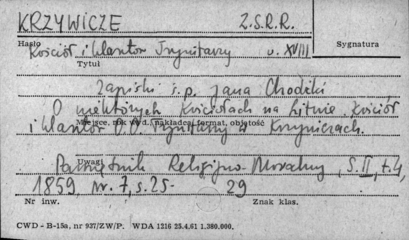 KRZYWICZE Z.S.R.R.
Hasło
Kościół i klasztor Trynitarzy w. XVIII
Sygnatura
Tytuł
Zapiski ś.p. Jana Chodźki
O niektórych Kościołach na Litwie. Kościół
Miejsce, rok wyd., nakładca, format, objętość
i klasztor O.O. Trynitarzy w Krzywiczach.
Uwagi
Pamiętnik Religijno-Moralny, S. II, t. 4,
1859, nr. 7, s. 25-29
Nr inw.
Znak klas.
CWD - B-15a, nr 937/ZW/P. WDA 1216 25.4.61 1.380.000.